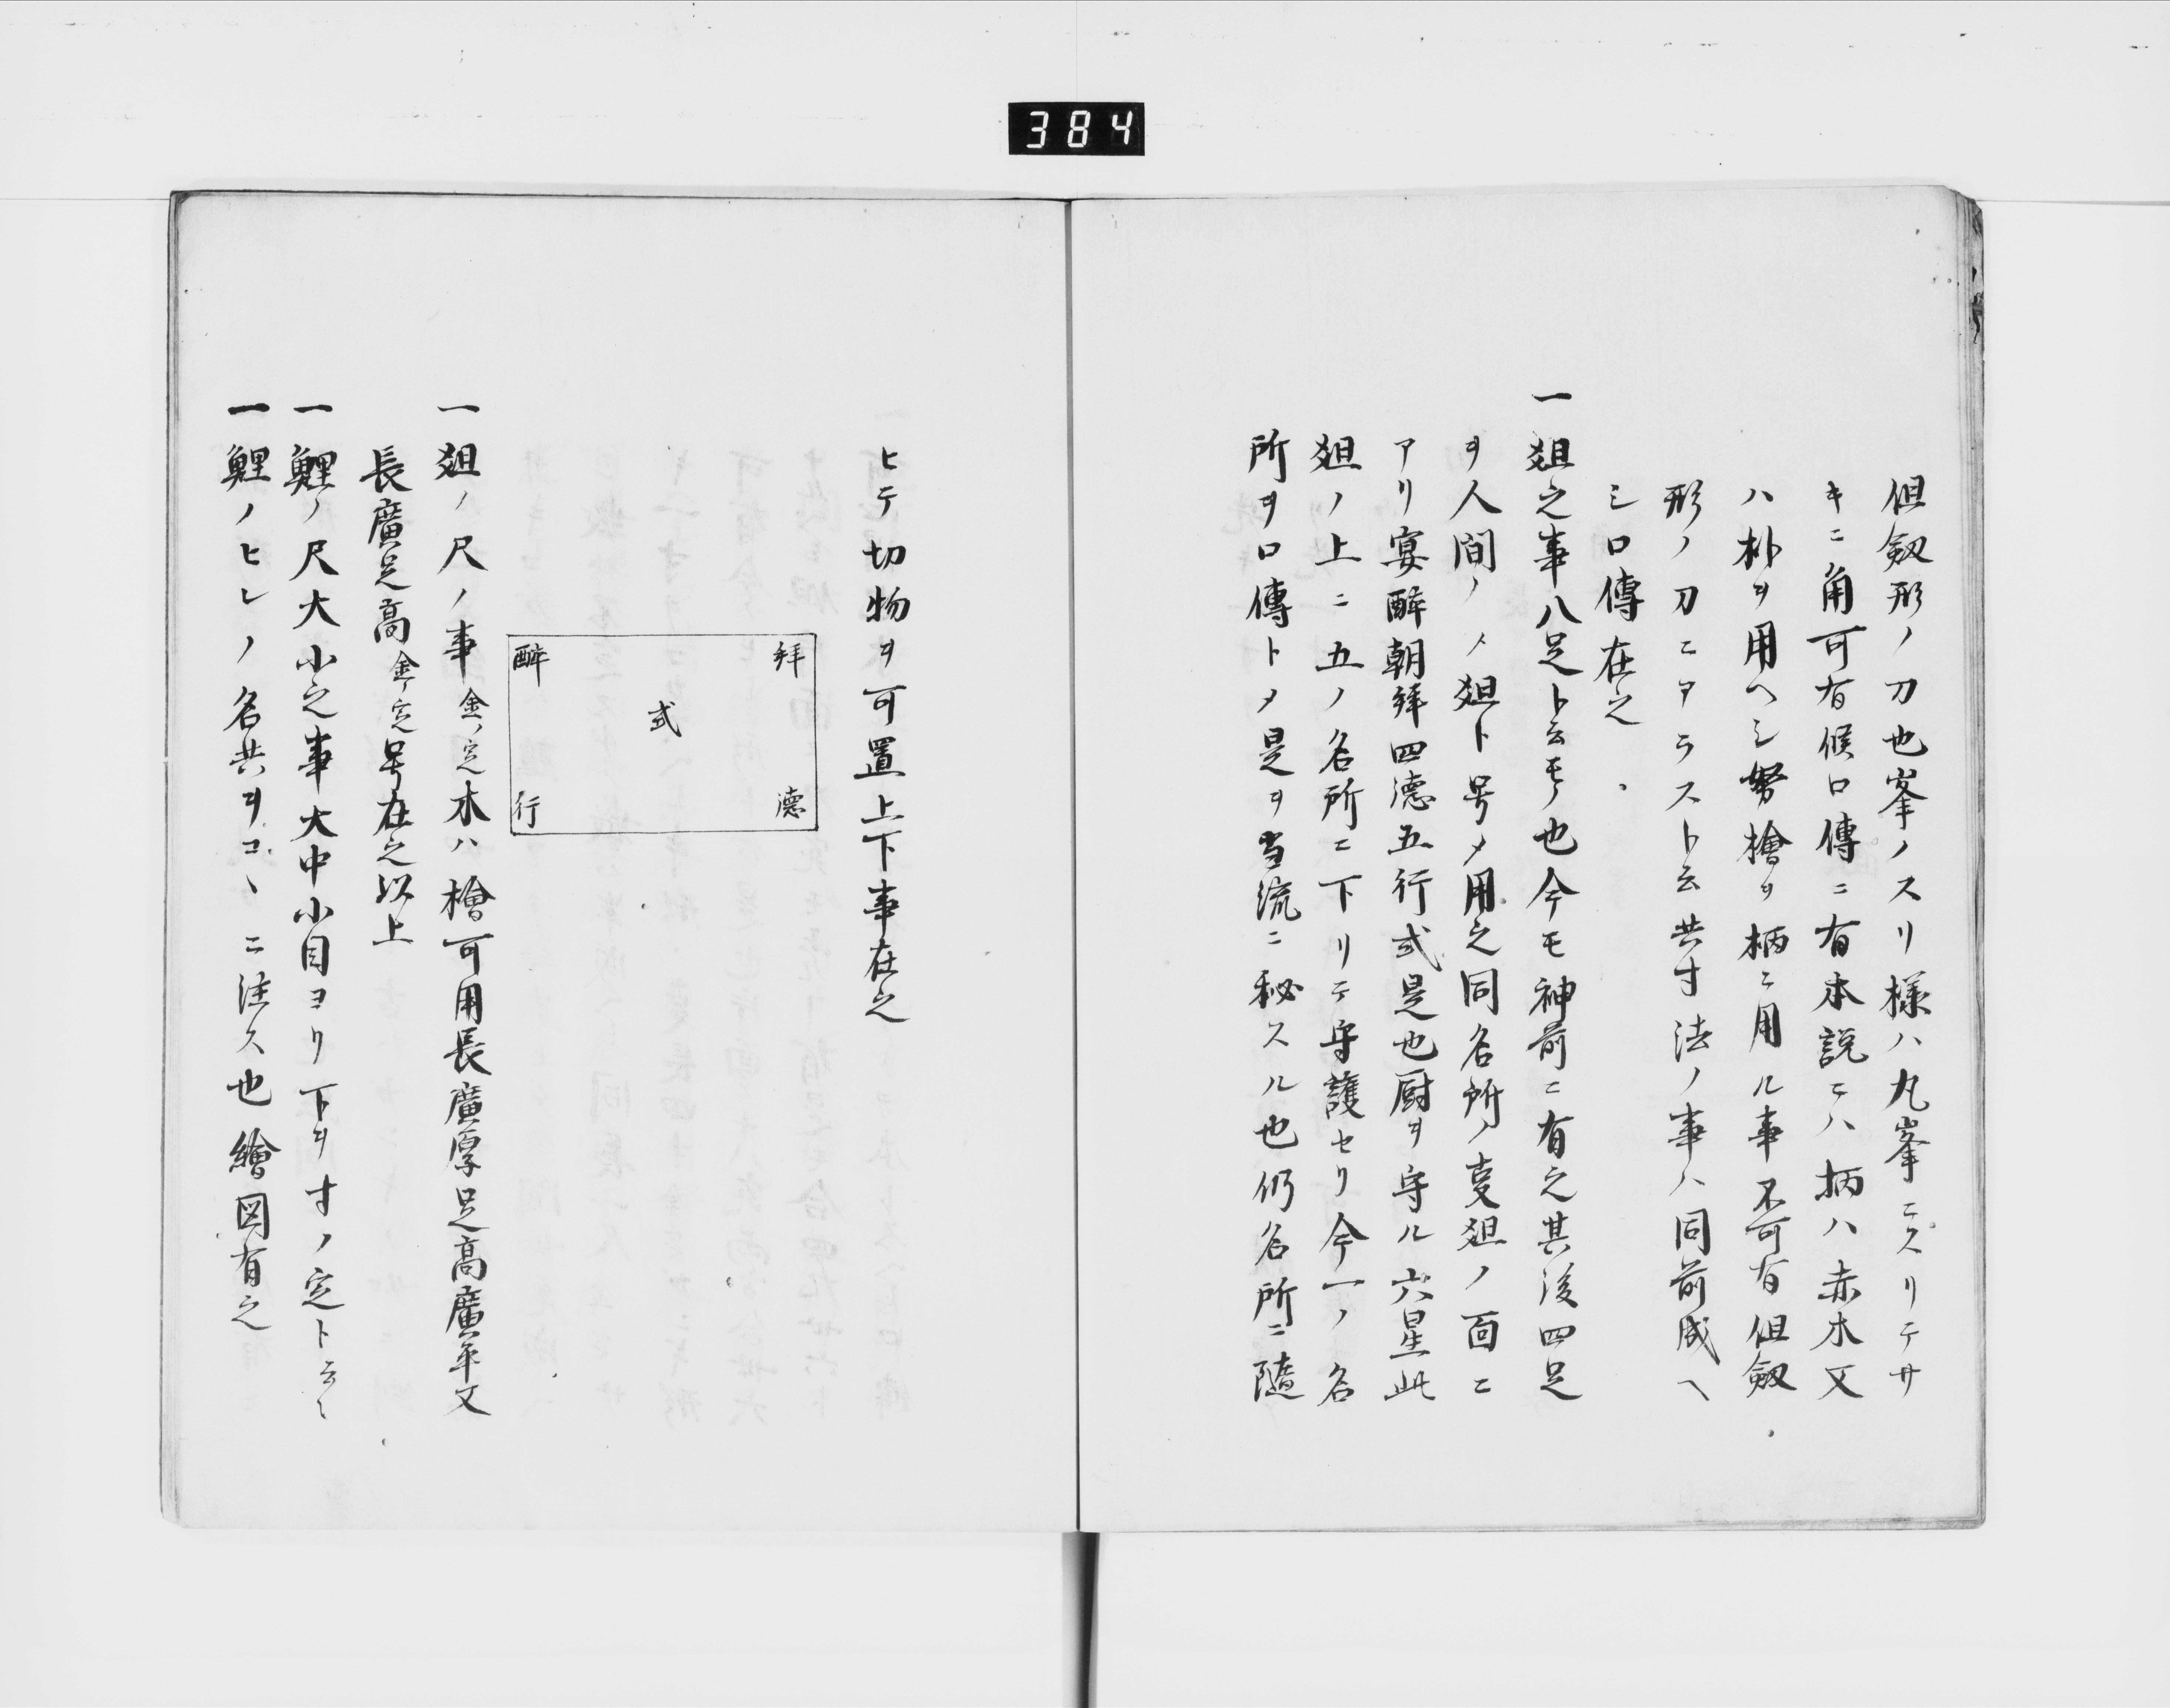 384
但釼形ノ刀也峯ノスリ様ハ丸峯ニスリテサ
キニ角可有候口傳ニ有本説ニハ柄ハ赤木又
ハ朴ヲ用ヘシ努檜ヲ柄ニ用ル事不可有但釼
形ノ刀ニアラスト云共寸法ノ事ハ同前成ヘ
シ口傳在之
一俎之事八足ト云モ也今モ神前ニ有之其後四足
ヲ人間ノメ俎ト号メ用之同名所ノ支俎ノ面ニ
アリ宴酔朝拜四徳五行式是也厨ヲ守ル六星此
俎ノ上ニ五ノ名所ニ下リテ守護セリ今一ノ名
所ヲ口傳トメ是ヲ当流ニ秘スル也仍名所ニ隨
ヒテ切物ヲ可置上下事在之
拜
徳
式
酔
行
一俎ノ尺ノ事金ノ定木ハ檜可用長廣厚足高廣平文
長廣足高金ノ定号在之以上
一鯉ノ尺大小之事大中小目ヨリ下ヲ寸ノ定ト云々
一鯉ノヒレノ名共ヲコヽニ注ス也繪図有之